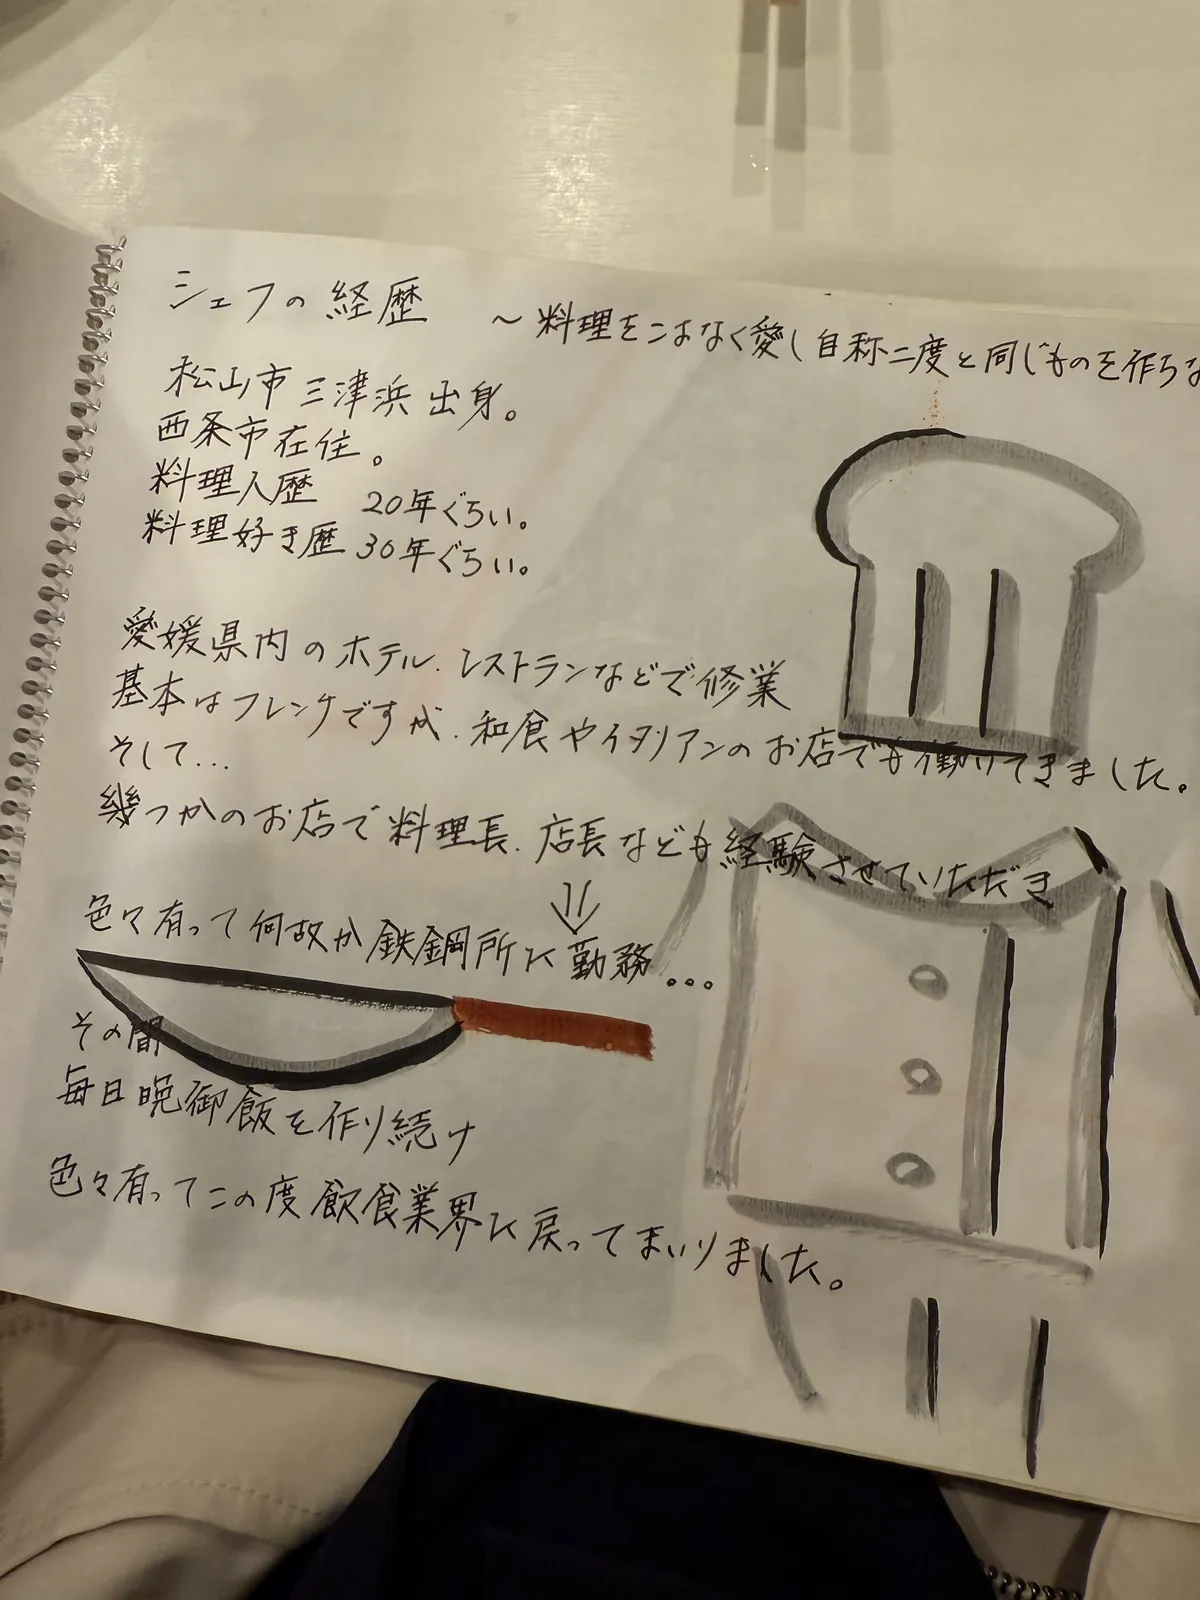 シェフの経歴 ～料理をこよなく愛し自称二度と同じものを作らな
松山市三津浜出身。
西条市在住。
料理人歴 20年ぐらい。
料理好き歴 30年ぐらい。
愛媛県内のホテル.レストランなどで修業
基本はフレンチですが.和食やイタリアンのお店でも働いてきました。
そして...
幾つかのお店で料理長.店長なども経験させていただき
⇓
色々有って何故か鉄鋼所に勤務...
その間
毎日晩御飯を作り続け
色々有ってこの度飲食業界に戻ってまいりました。